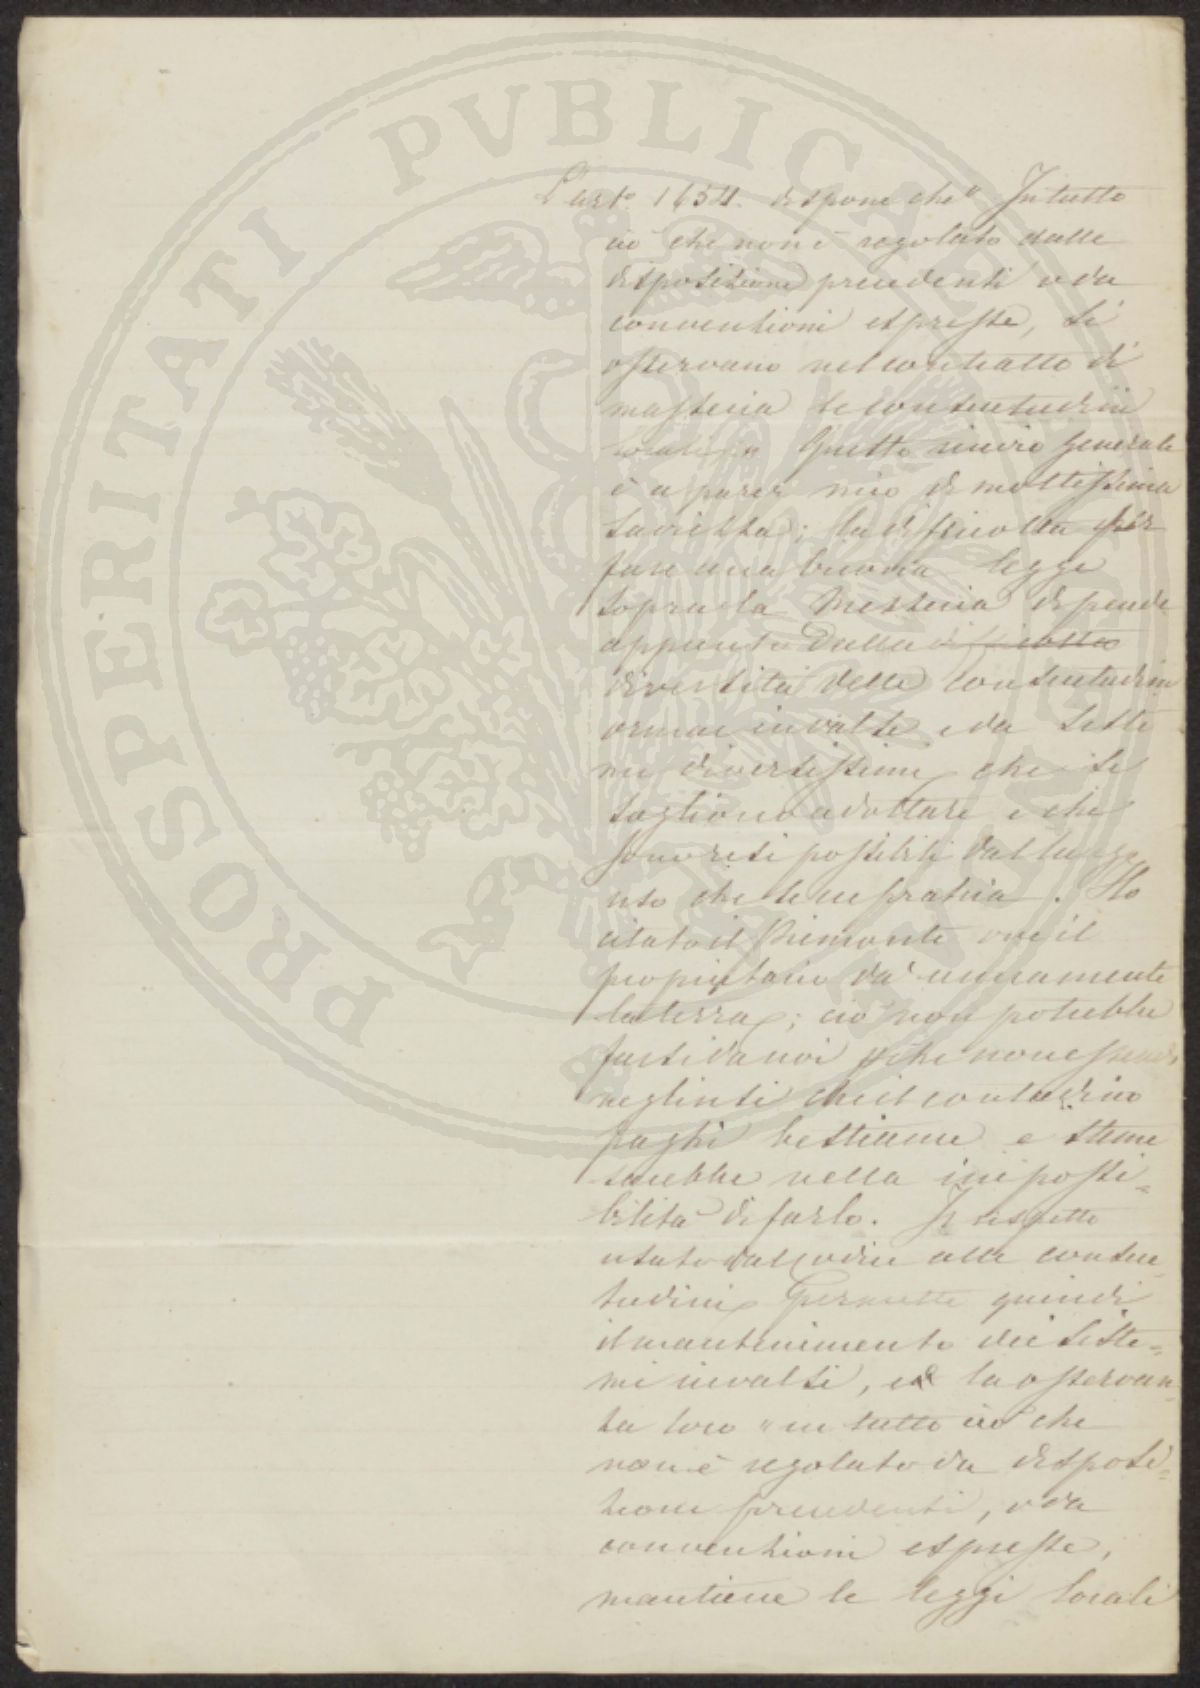 PROSPERITATI PVBLICAE AVGENDAE
L'art.º 1654. dispone che " In tutto
ciò che non è regolato dalle
disposizioni precedenti o da
convenzioni espresse, si
osservano nel contratto di
masseria le consuetudini
locali " Questo rinvio generale
è a parer mio di moltissima
saviezza; la difficoltà per
fare una buona legge
sopra la Mezzeria dipende
appunto dalla difficoltà
diversità delle consuetudini
ormai invalse e da siste
mi diversissimi che si
sogliono adottare e che
sono resi possibili dal lungo
uso che se ne pratica. Ho
citato il Piemonte ove il
proprietario dà unicamente
la terra; ciò non potrebbe
farsi da noi che non essendo
negl'usi che il contadino
paghi bestiame e seme
sarebbe nella impossi=
bilità di farlo. Il rispetto
usato dal codice alle consue=
tudini permette quindi
il mantenimento dei siste=
mi invalsi, ed la osservan=
za loro " in tutto ciò che
non è regolato da disposi=
zioni precedenti, o da
convenzioni espresse,
mantiene le leggi locali